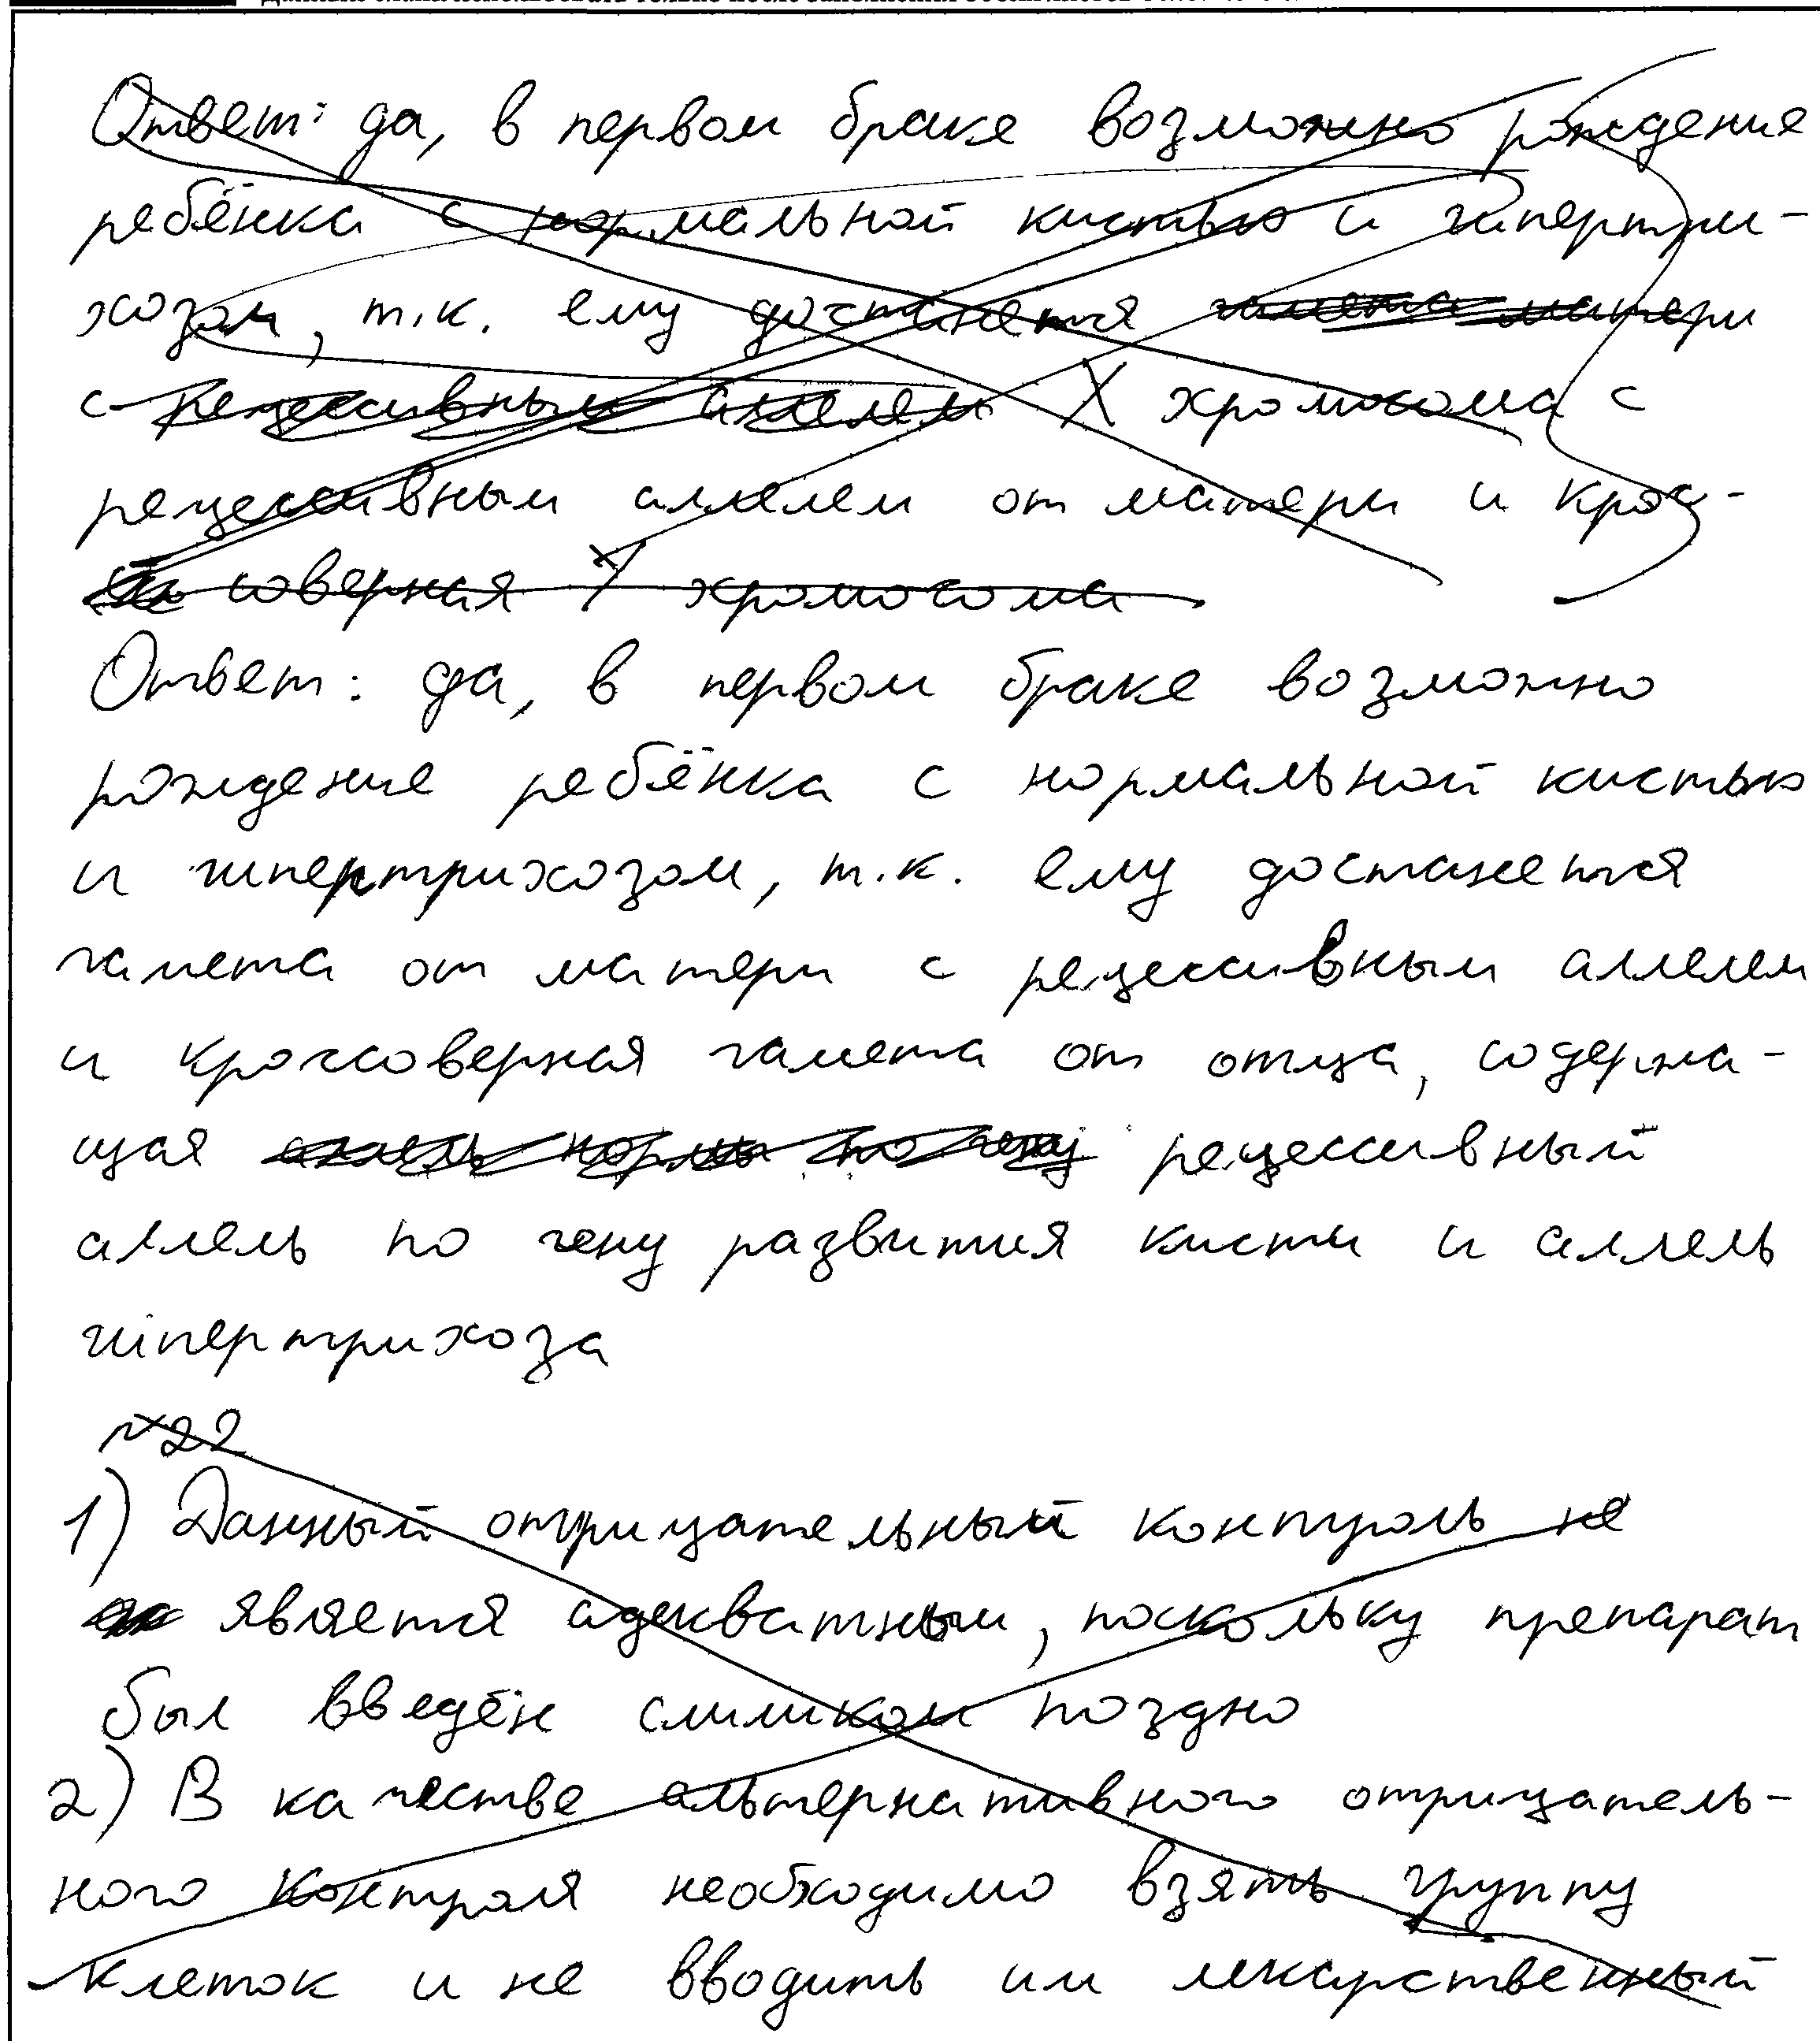 Ответ: да, в первом браке возможно рождение
ребёнка с нормальной кистью и гипертри-
хозом, т.к. ему достанется гамета матери
с рецессивным аллелем X хромосома с
рецессивным аллелем от матери и крос-
соверная Y хромосома
Ответ: да, в первом браке возможно
рождение ребёнка с нормальной кистью
и гипертрихозом, т.к. ему достанется
гамета от матери с рецессивным аллелем
и кроссоверная гамета от отца, содержа-
щая аллель нормы по гену рецессивный
аллель по гену развития кисти и аллель
гипертрихоза
№22
1) Данный отрицательный контроль не
является адекватным, поскольку препарат
был введён слишком поздно
2) В качестве альтернативного отрицатель-
ного контроля необходимо взять группу
клеток и не вводить им лекарственный